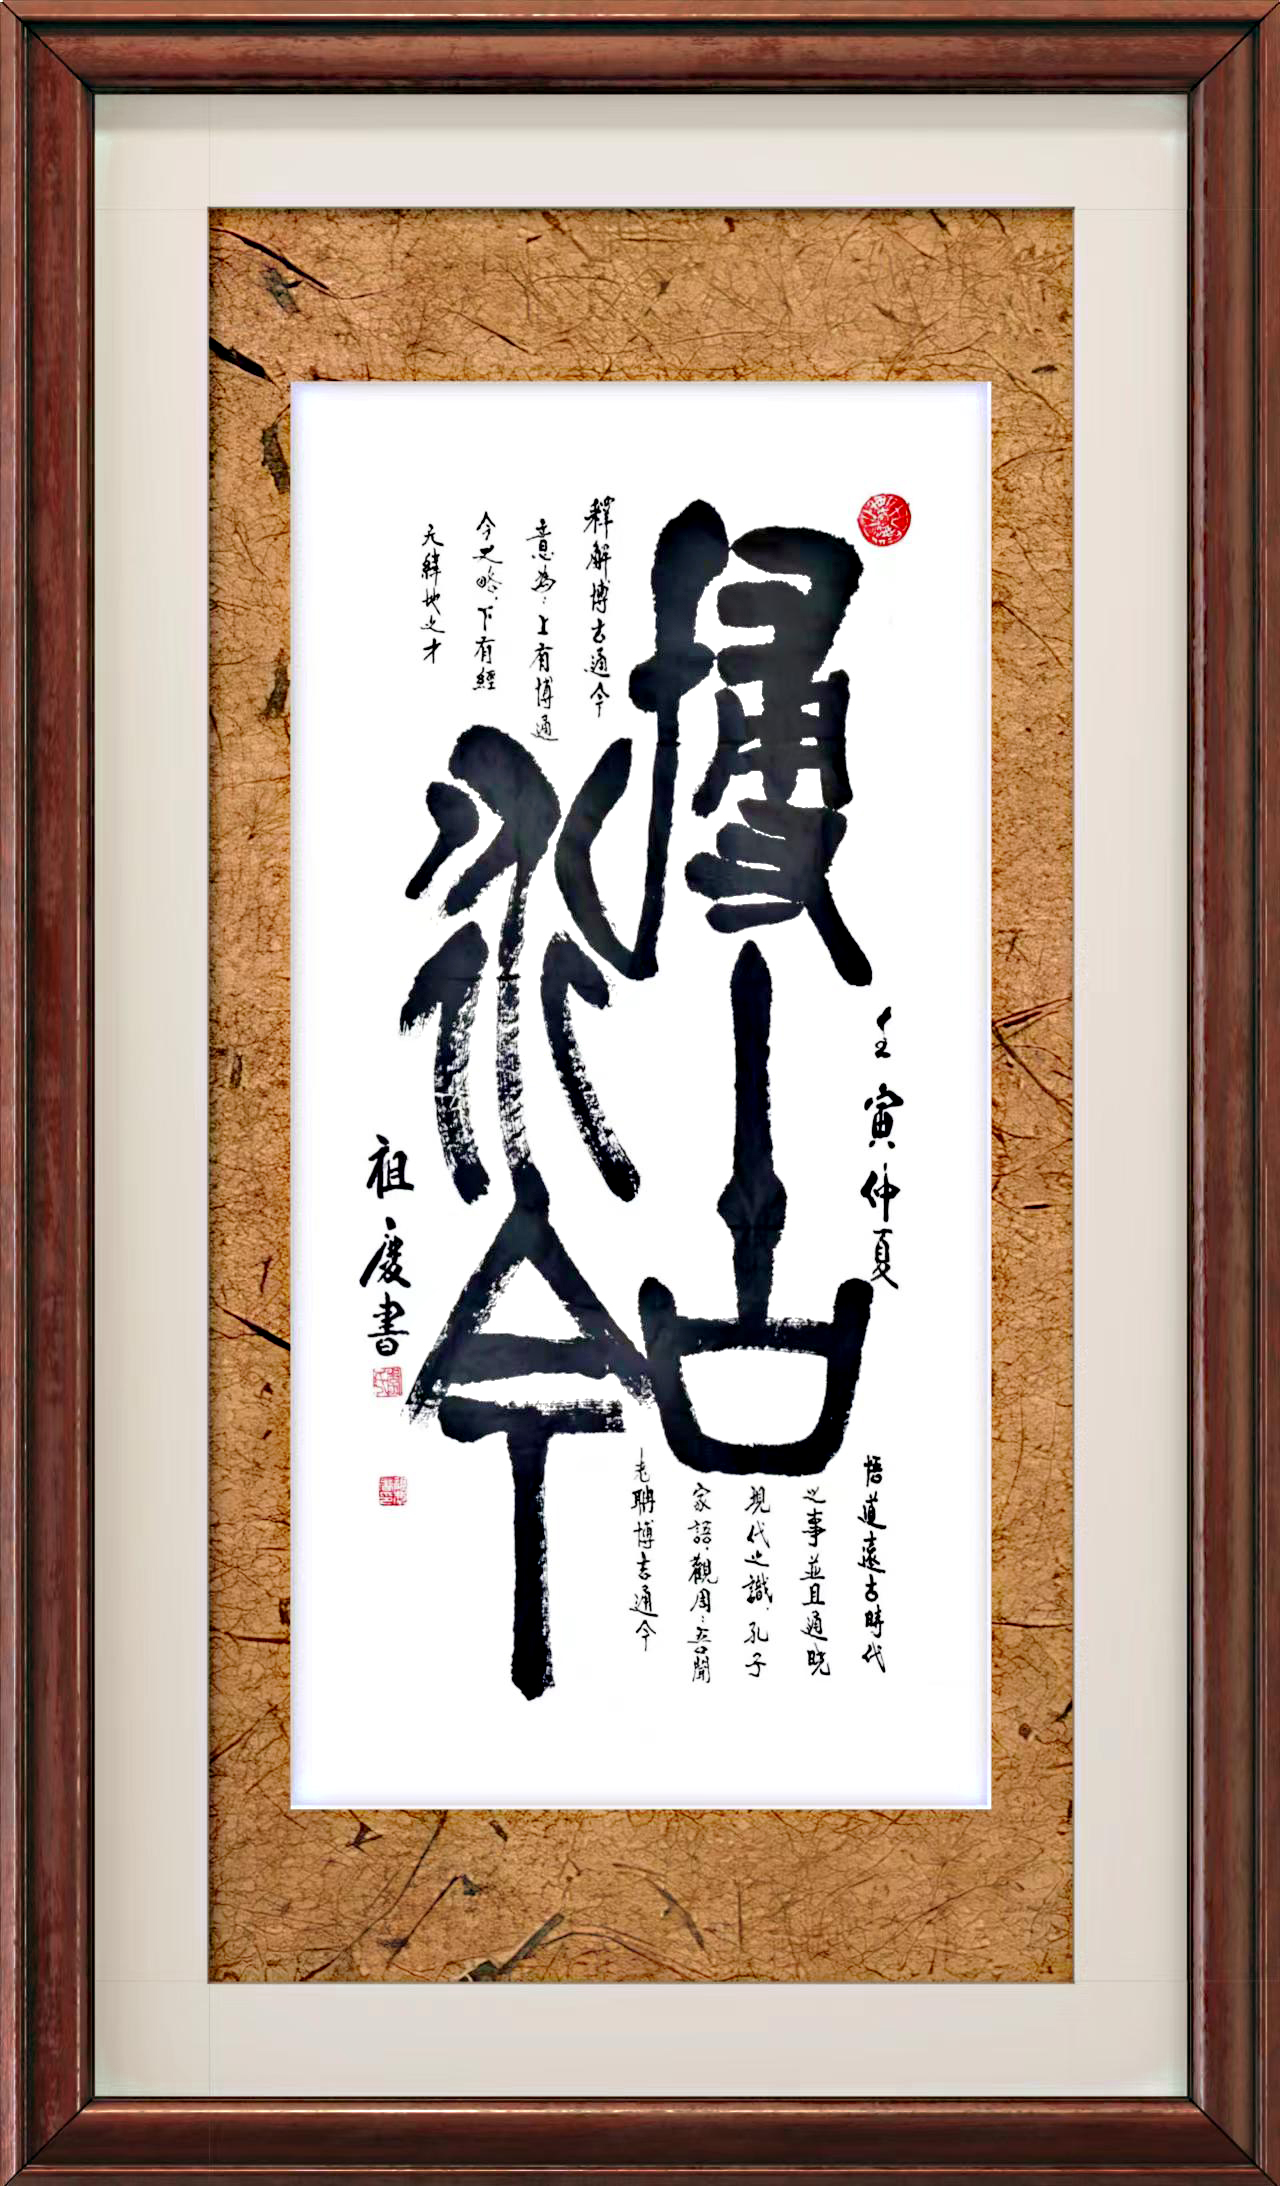 博古
通今
壬寅仲夏
釋解博古通今
意為：上有博通
今之略，下有經
天緯地之才
悟道遠古時代
之事並且通曉
現代之識，孔子
家語，觀周：吾聞
老聃博古通今
祖慶書